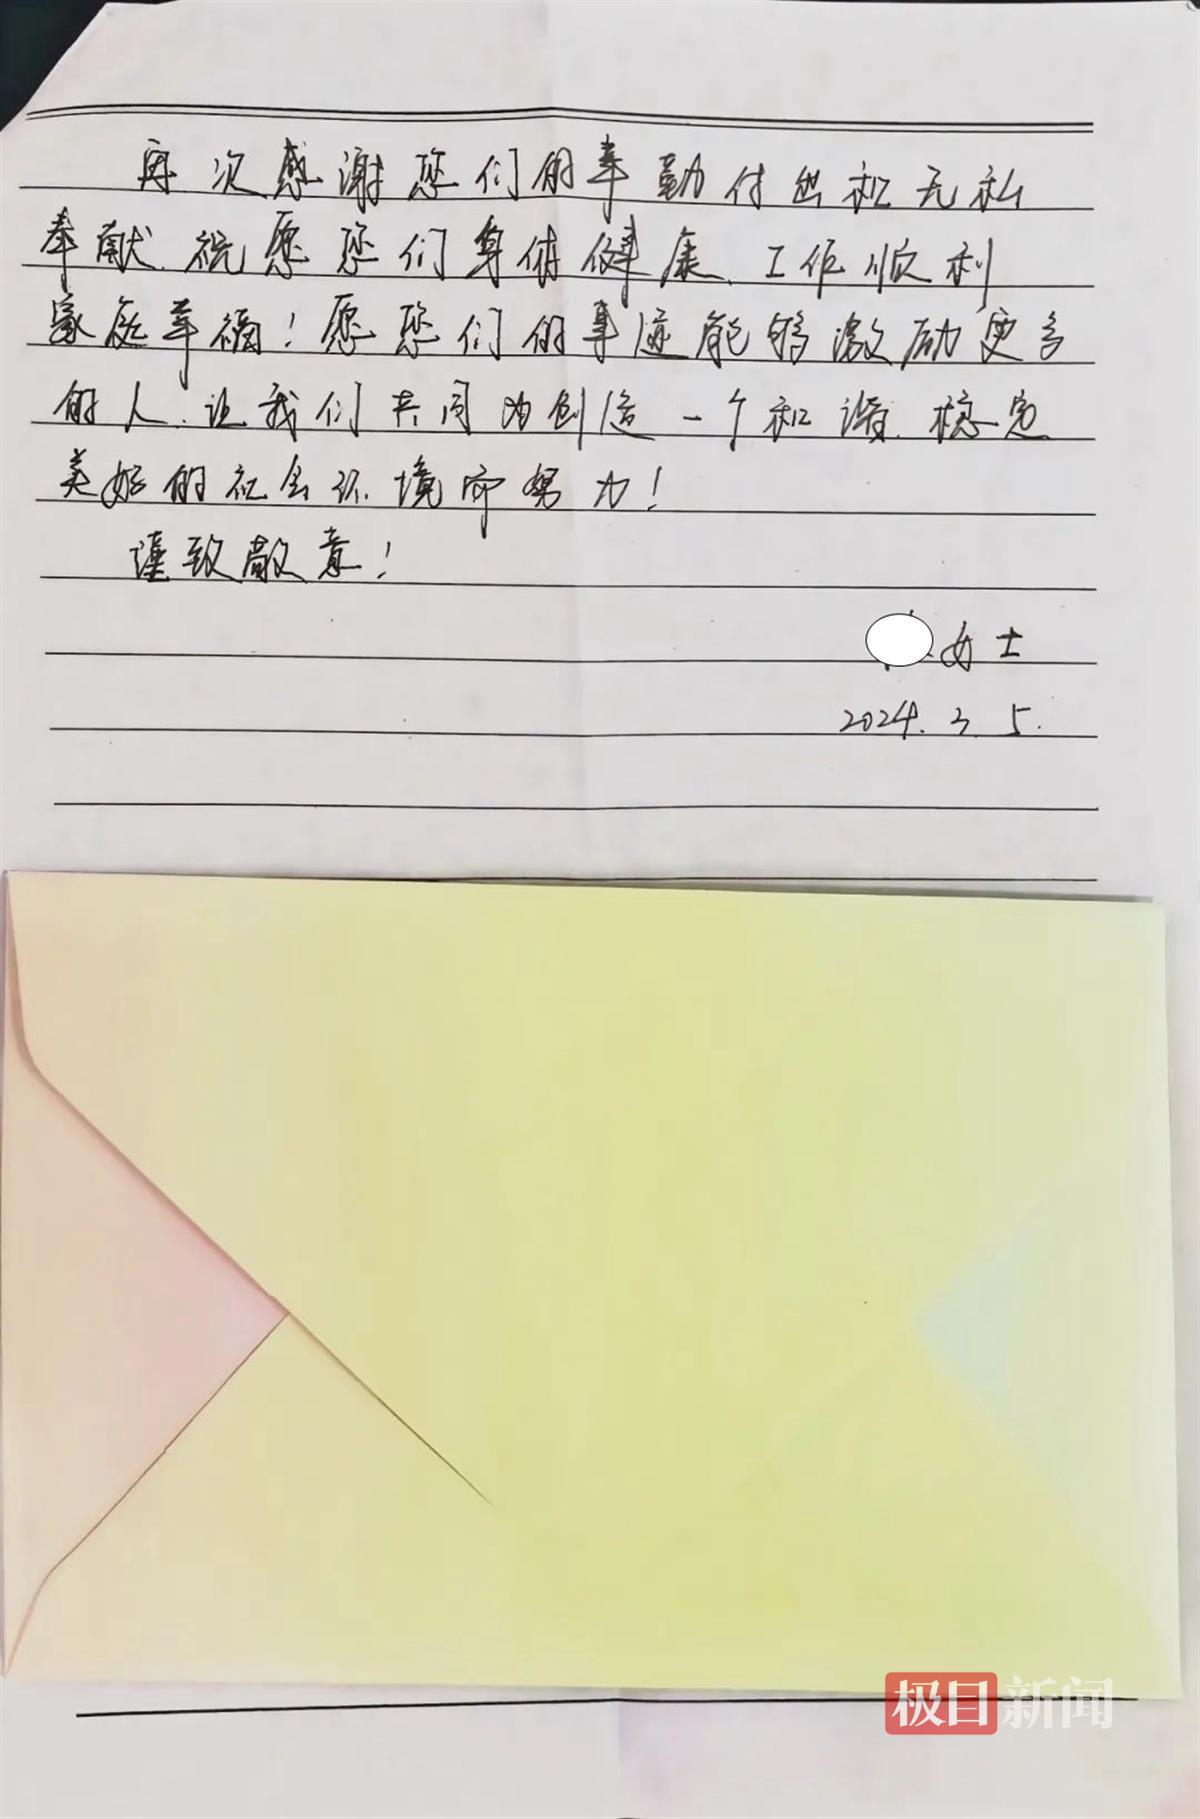 再次感谢您们的辛勤付出和无私
奉献、祝愿您们身体健康、工作顺利
家庭幸福！愿您们的事迹能够激励更多
的人、让我们共同为创造一个和谐、稳定
美好的社会环境而努力！
谨致敬意！
女士
2024.3.5.
极目新闻